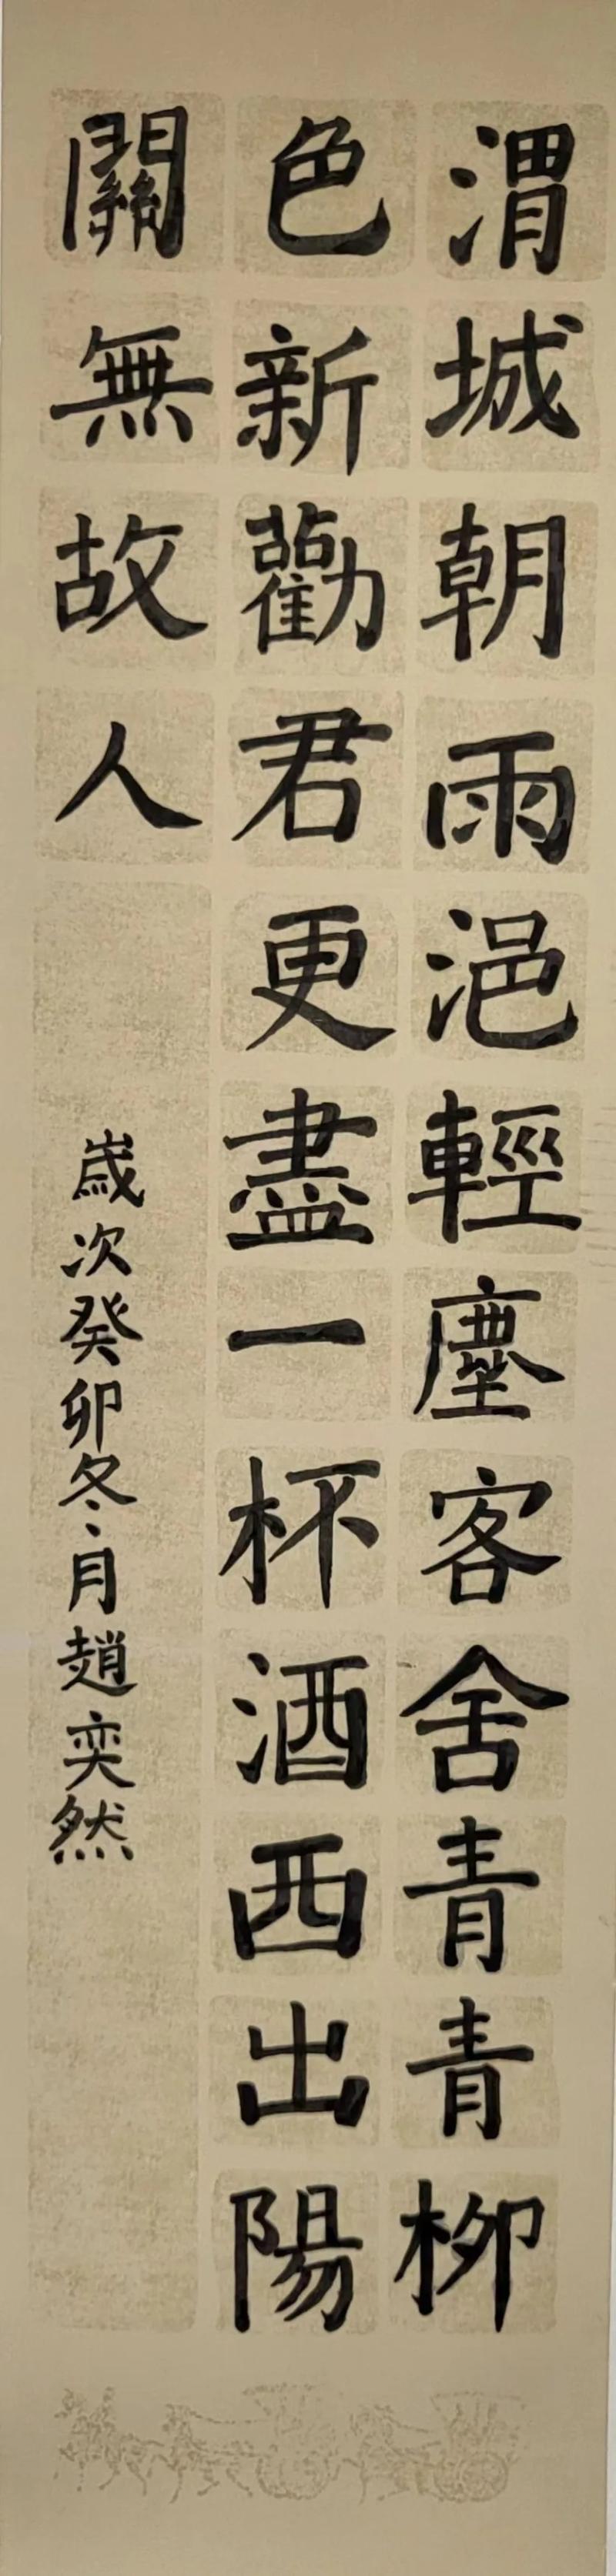 渭城朝雨浥輕塵客舍青青柳
色新勸君更盡一杯酒西出陽
關無故人
歲次癸卯冬月趙奕然